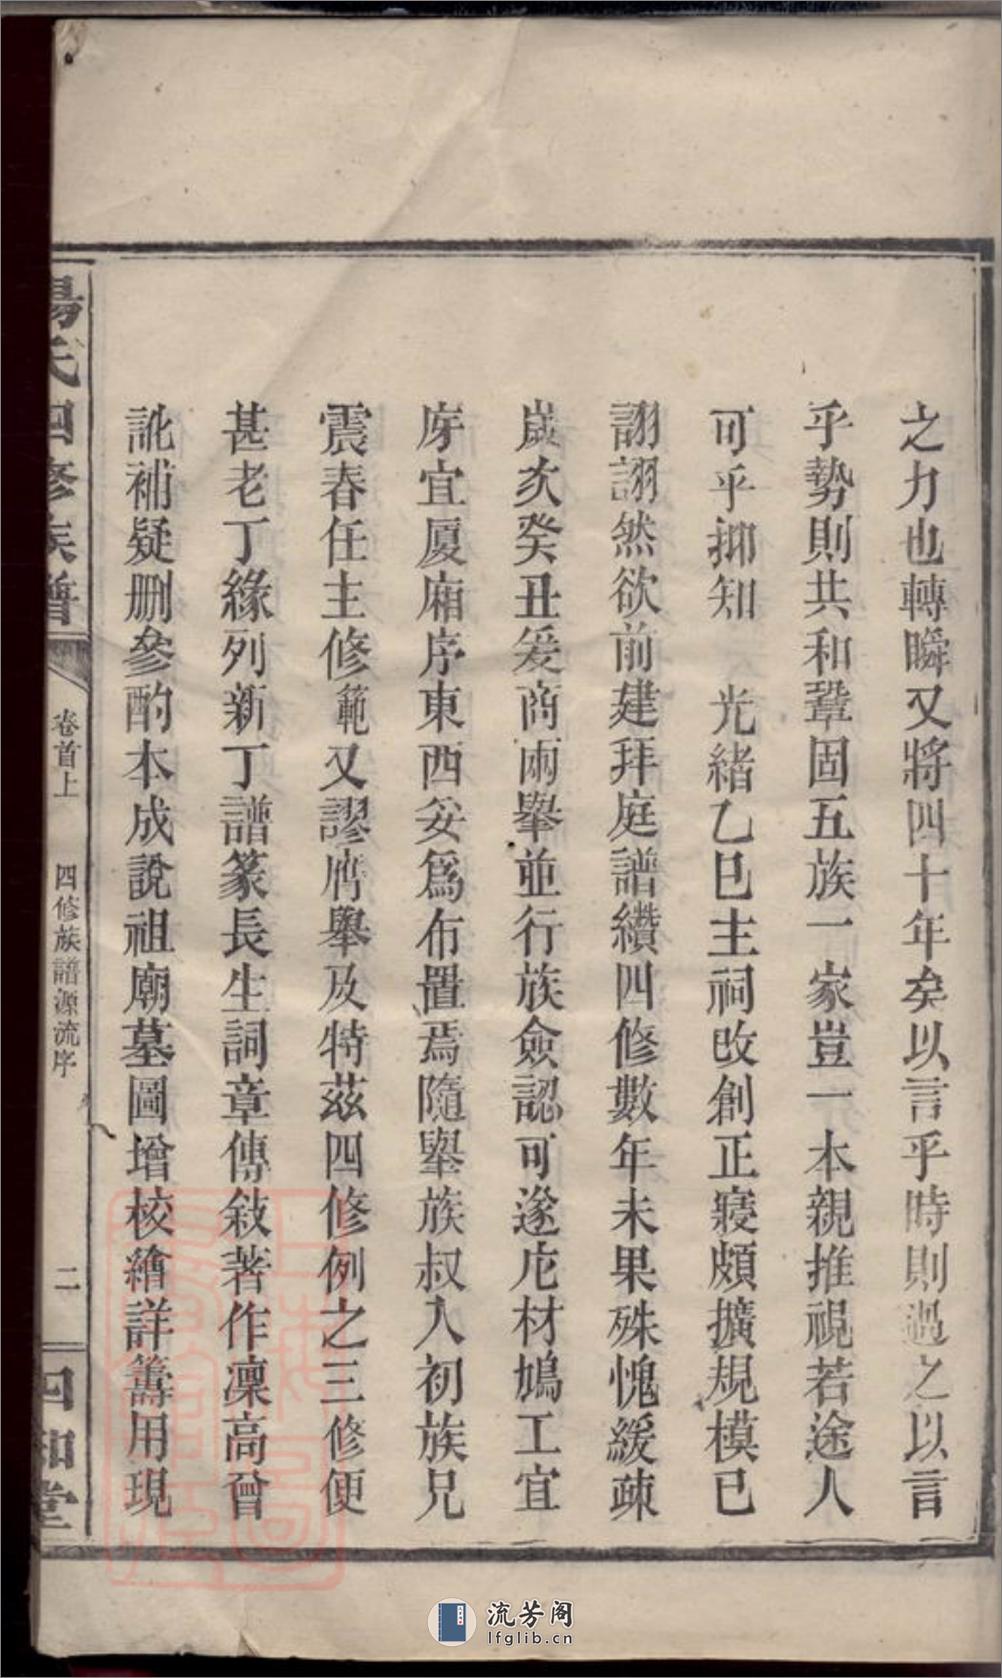 之力也轉瞬又將四十年矣以言乎時則過之以言
乎勢則共和鞏固五族一家豈一本親推視若途人
可乎抑知 光緒乙巳主祠改創正寢頗擴規模已
詡詡然欲前建拜庭譜纘四修數年未果殊愧緩疎
歲次癸丑爰商兩舉並行族僉認可遂庀材鳩工宜
庌宜廈廂序東西妥爲布置焉隨舉族叔入初族兄
震春任主修範又謬膺舉及特茲四修例之三修便
甚老丁緣列新丁譜篆長生詞章傳敍著作凜高曾
訛補疑删參酌本成說祖廟墓圖增校繪詳籌用現
楊氏四修族譜
卷首上
四修族譜源流序
二
四知堂
流芳阁
lfglib.cn